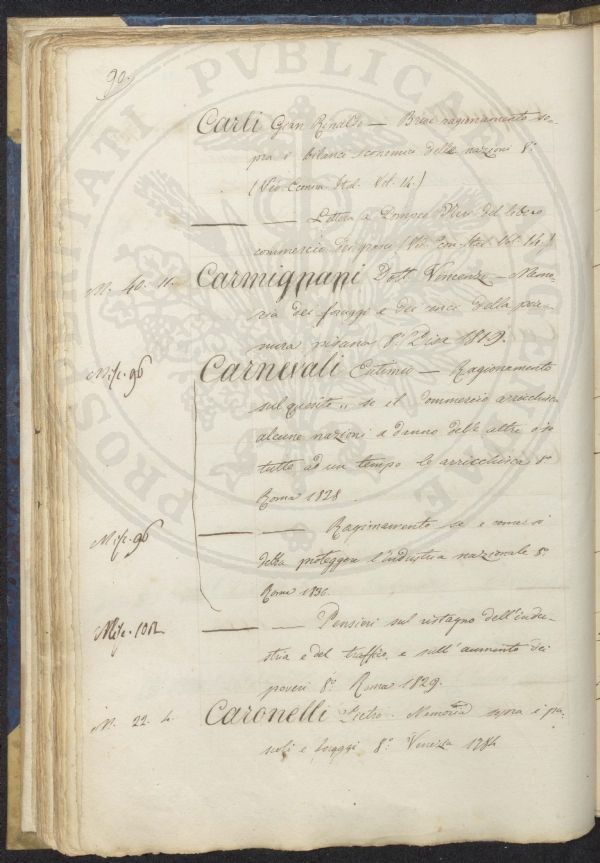 90.
PROSPERITATI PVBLICAE
Carli Gian Rinaldo — Breve ragionamento so-
pra i bilanci economici delle nazioni 8°
(Ved. Econom. Ital. Vol. 14.)
— — Lettera a Pompeo Neri del libero
commercio dei grani (Ved. Econ. Ital. Vol. 14.)
N. 40. 11. Carmignani Dott. Vincenzo — Memo-
ria dei foraggi e dei concj della pia-
nura pisana 8° Pisa 1819.
Misc. 96 Carnevali Eutimio — Ragionamento
sul quesito „ se il commercio arricchisca
alcune nazioni a danno delle altre o se
tutte ad un tempo le arricchisca 8°
Roma 1828.
Misc. 96 — — Ragionamento se e come si
debba proteggere l'industria nazionale 8°
Roma 1836.
Misc. 1012 — — Pensieri sul ristagno dell'indu-
stria e del traffico, e sull'aumento dei
poveri 8° Roma 1829.
N. 22. 4. Caronelli Pietro. Memoria sopra i pa-
scoli e foraggi 8° Venezia 1784